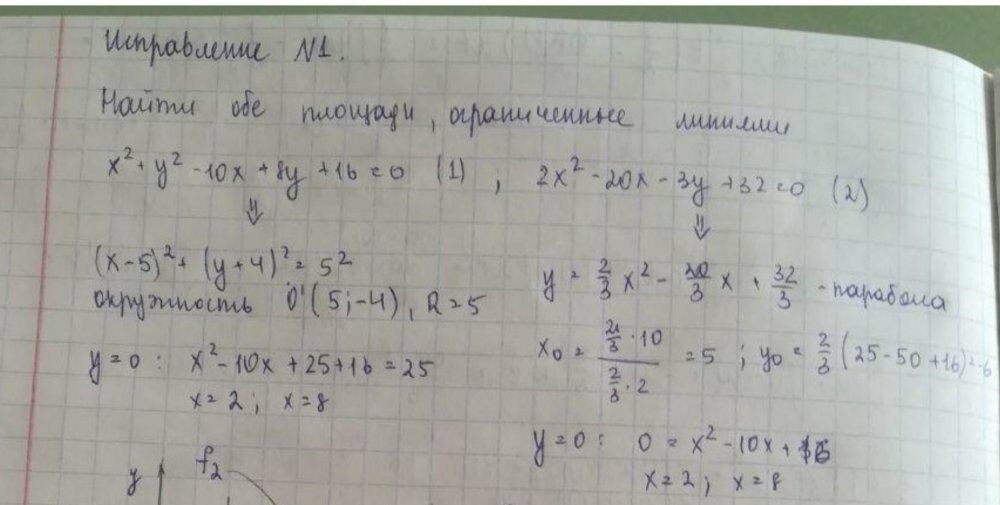 Исправление №1.
Найти обе площади, ограниченные линиями
x² + y² - 10x + 8y + 16 = 0 (1) ; 2x² - 20x - 3y + 32 = 0 (2)
⇓ ⇓
(x-5)² + (y+4)² = 5²
окружность O'(5;-4), R=5
y = 2/3 x² - 20/3 x + 32/3 - парабола
y=0 : x² - 10x + 25 + 16 = 25
x = 2 ; x = 8
x₀ = (2/3 · 10)/(2/3 · 2) = 5 ; y₀ = 2/3 (25 - 50 + 16) = -6
y=0 : 0 = x² - 10x + 16
x = 2 ; x = 8
y f₂